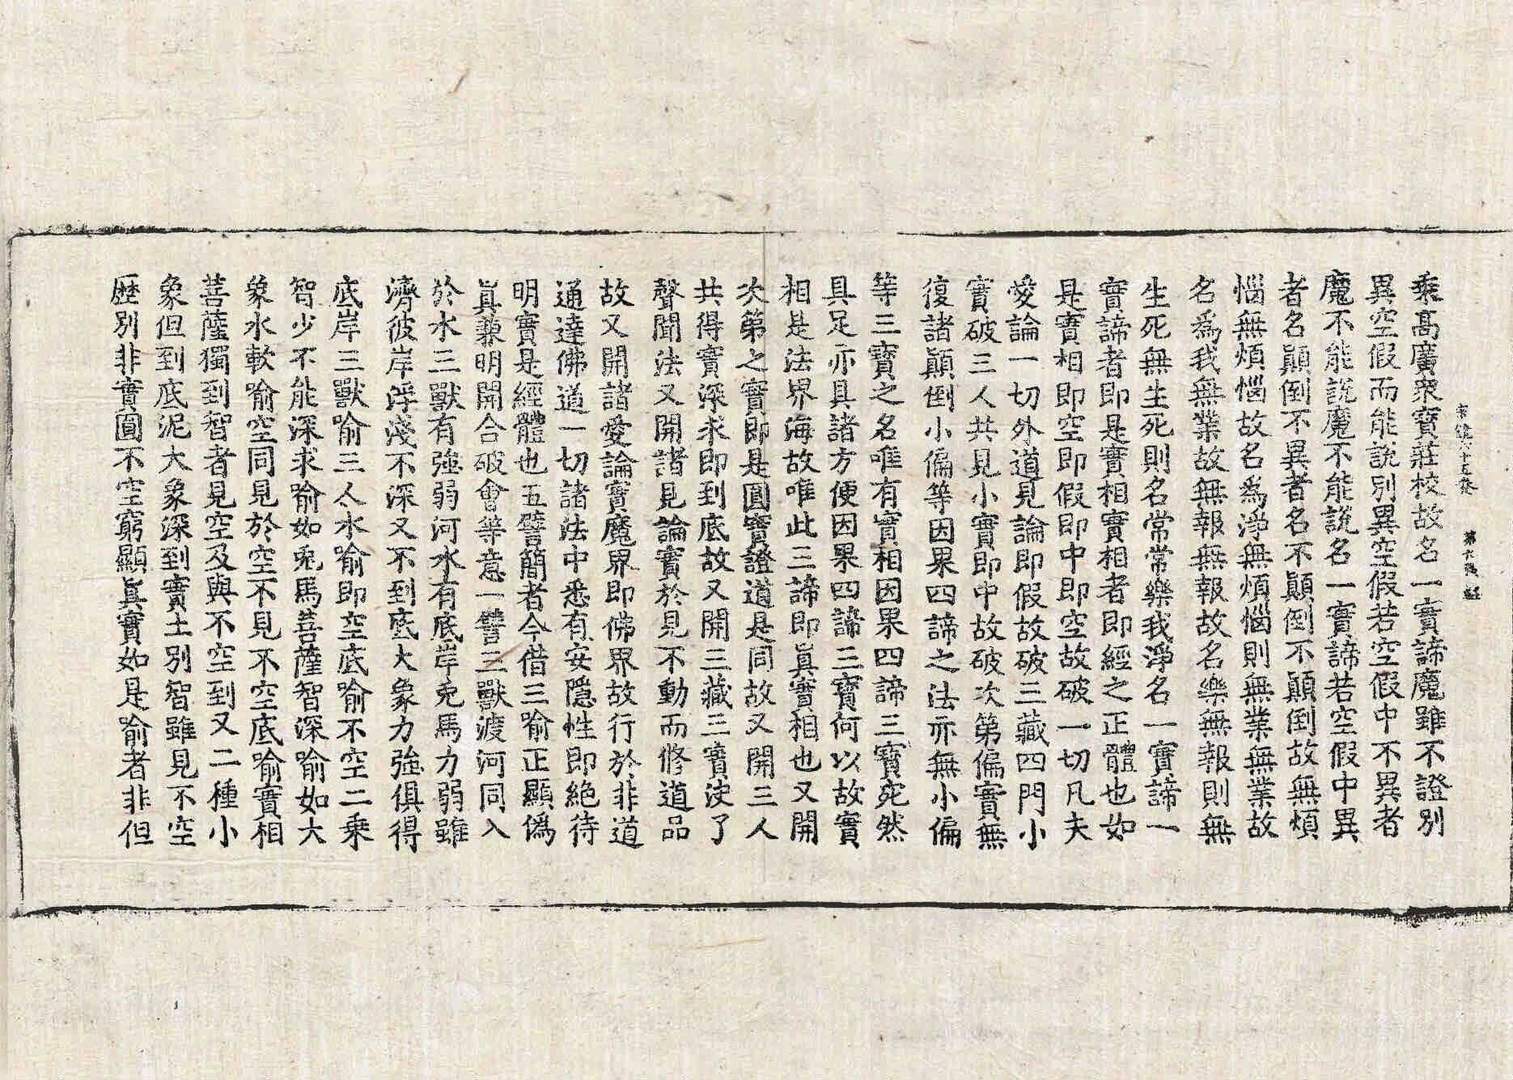 宗鏡六十五卷　第六張　經
乘高廣衆寶莊校故名一實諦魔雖不證別
異空假而能說別異空假若空假中不異者
魔不能說魔不能說名一實諦若空假中異
者名顚倒不異者名不顚倒不顚倒故無煩
惱無煩惱故名爲淨無煩惱則無業無業故
名爲我無業故無報無報故名樂無報則無
生死無生死則名常常樂我淨名一實諦一
實諦者即是實相實相者即經之正體也如
是實相即空即假即中即空故破一切凡夫
愛論一切外道見論即假故破三藏四門小
實破三人共見小實即中故破次第偏實無
復諸顚倒小偏等因果四諦之法亦無小偏
等三寶之名唯有實相因果四諦三寶宛然
具足亦具諸方便因果四諦三寶何以故實
相是法界海故唯此三諦即眞實相也又開
次第之實即是圓實證道是同故又開三人
共得實深求即到底故又開三藏三寶決了
聲聞法又開諸見論實於見不動而修道品
故又開諸愛論實魔界即佛界故行於非道
通達佛道一切諸法中悉有安隱性即絶待
明實是經體也五譬簡者今借三喻正顯僞
眞兼明開合破會等意一譬三獸渡河同入
於水三獸有強弱河水有底岸兎馬力弱雖
濟彼岸浮淺不深又不到底大象力強俱得
底岸三獸喻三人水喻即空底喻不空二乘
智少不能深求喻如兎馬菩薩智深喻如大
象水軟喻空同見於空不見不空底喻實相
菩薩獨到智者見空及與不空到又二種小
象但到底泥大象深到實土別智雖見不空
歷別非實圓不空窮顯眞實如是喻者非但